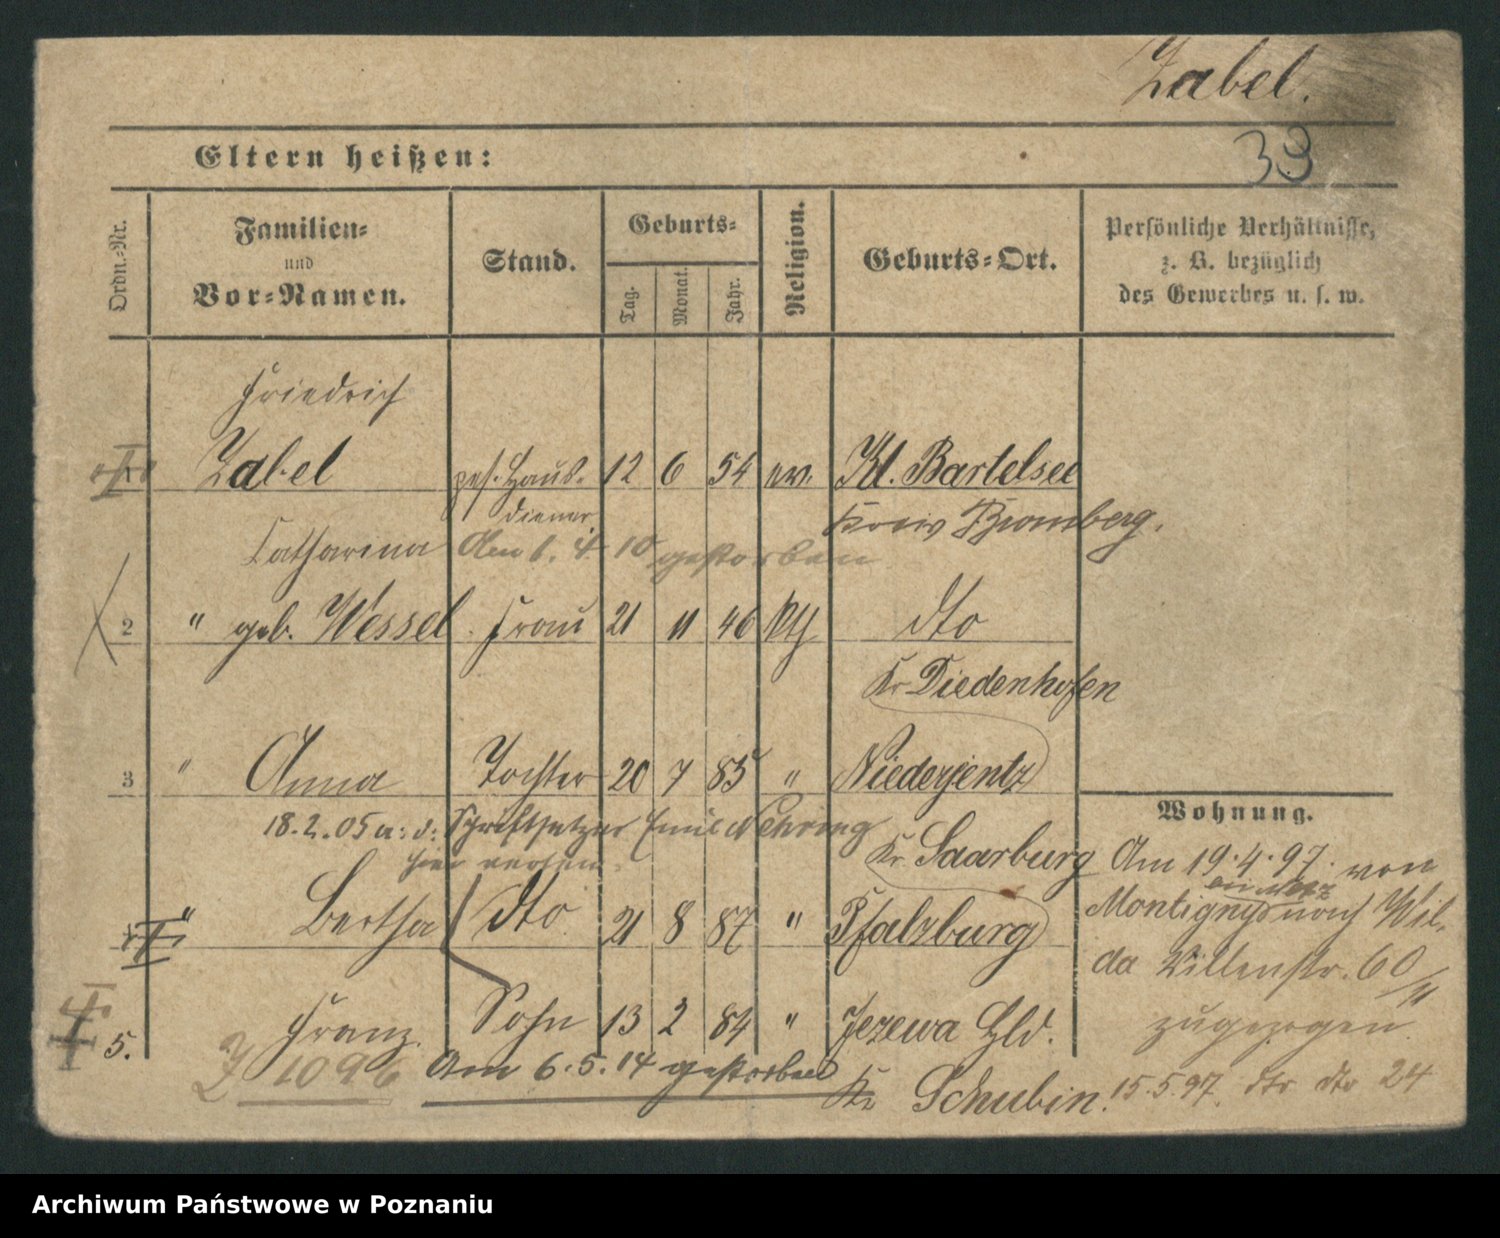 Zabel.
33
Eltern heißen:
Ordn.-Nr.
Familien-
und
Vor-Namen.
Stand.
Geburts-
Tag.
Monat.
Jahr.
Religion.
Geburts-Ort.
Persönliche Verhältnisse,
z. B. bezüglich
des Gewerbes u. s. w.
Friedrich
1 Zabel Haus- 12 6 54 ev. Kl. Bartelsee
diener Kreis Bromberg.
Catharina Am 1. 4 10 gestorben
2 " geb. Wessel Frau 21 11 46 kth dto
Kr Diedenhofen
3 " Anna Tochter 20 7 85 " Niederjentz
18.2.05 a. d. Schriftsetzer Emil Nehring
hier
Kr. Saarburg
" Bertha dto 21 8 87 " Pfalzburg
5. Franz. Sohn 13 2 84 " Jezewa Hld.
Z 1096 Am 6.5.14 gestorben Kr Schubin.
Wohnung.
Am 19.4.97. von
Montigny nach Wil-
da Villenstr. 60/II
zugezogen
15.5.97. dto dto 24
Archiwum Państwowe w Poznaniu